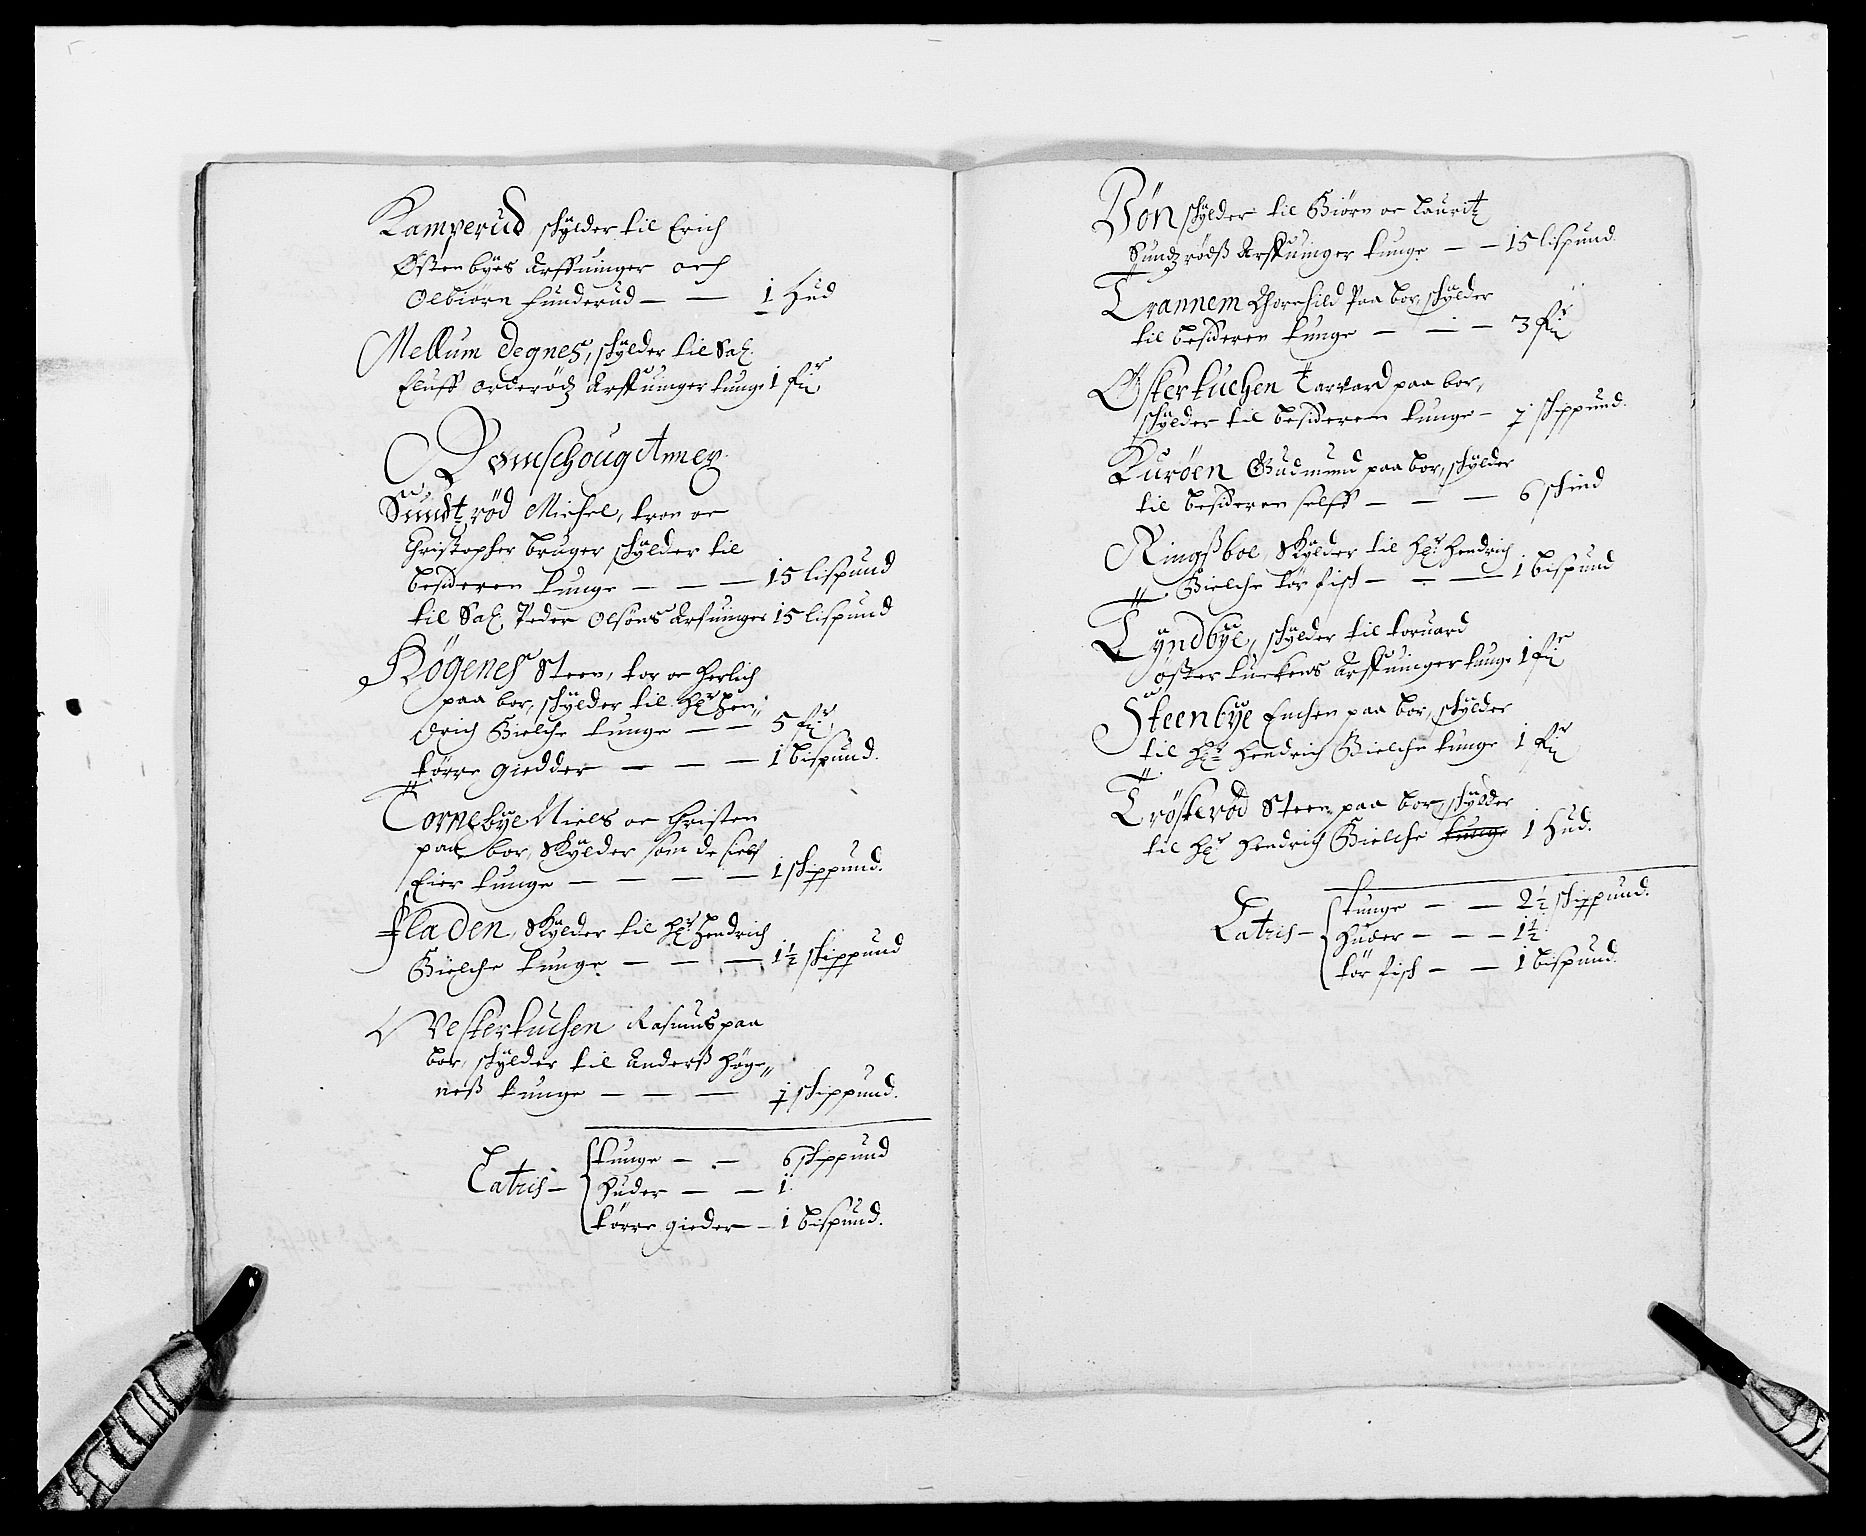 Kamperud schÿlder til Erich
Østenbÿes Arffuinger och
Olbiørn Hunderud — — 1 Hud
Mellum Degnes, schÿlder til Sal.
Eluff Orderødz Arffuinger tunge 1 fi
Romschoug Annex
Sundtrød Michel, tron oc
Christopher bruger schÿlder til
besideren tunge — — — 15 lispund
til Sal. Peder Olsøns Arfuinger 15 lispund
Høgenes Steen, tor oc Herlich
paa bor, schÿlder til Hr Hen„
drich Bielche tunge — — 5 fi
tørre giedder — — — 1 bispund.
Tornebÿe Niels oc Christen
paa bor, Schÿlder som de sielf
Eier tunge — — — — 1 schippund.
Fladen, Schÿlder til Hr Hendrich
Bielche tunge — — — 1½ schippund
Vesterkuchen Rasmus paa
bor, schÿlder til Anderß Høge„
neß tunge — — — 1 schippund.
tunge — — 6 schippund
Latris — Huder — — 1
tørre gieder — 1 bispund.
Bøn schÿlder til Biørn oc Lauritz
Sundzrødß Arffuinger tunge — — 15 lispund
Trannem Thorchild Paa bor, schÿlder
til besideren tunge — — — 3 fi
Østerkuchen Tarvard paa bor,
schÿlder til besideren tunge — 1 schippund.
Kurøen Gudmund paa bor, schÿlder
til besideren selff — — — 6 schind
Ringßboe, Schÿlder til Hr Hendrich
Bielche tør fisch — — — 1 bispund
Tÿndbÿe, schÿlder til toruard
østerkuchens Arffuinger tunge 1 fi
Steenbÿe Enchen paa bor, schÿlder
til Hr Hendrich Bielche tunge 1 fi
Trøsterød Steen paa bor, schÿlder
til Hr Hendrich Bielche tunge 1 Hud.
tunge — — 2½ schippund.
Latris — Huder — — — 1½
tør fisch — — 1 bispund.